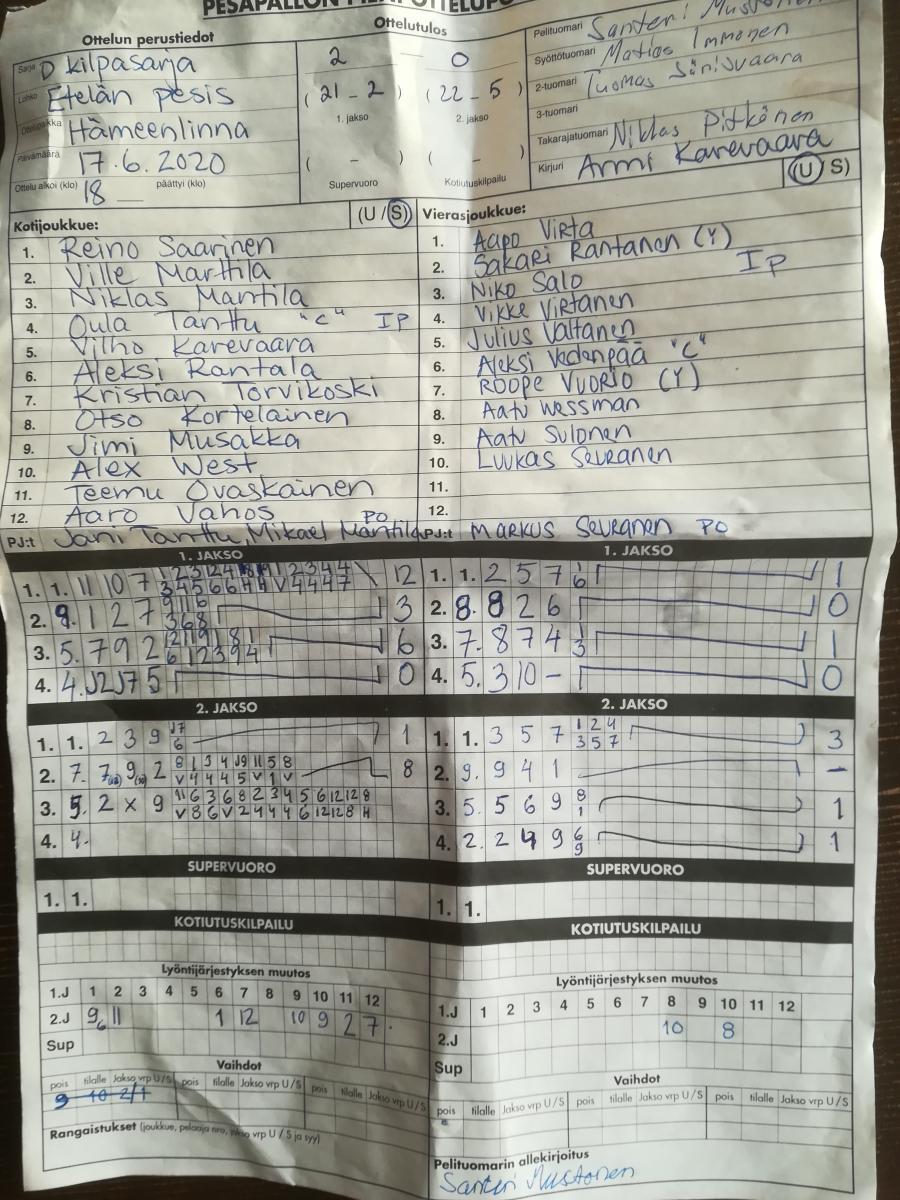 Ottelun perustiedot
Ottelutulos
Sarja D kilpasarja
Lohko Etelän pesis
Hämeenlinna
Päivämäärä 17.6.2020
Ottelu alkoi (klo) 18 päättyi (klo)
2 0
(21 - 2) (22 - 5)
1. jakso 2. jakso
( - ) ( - )
Supervuoro Kotiutuskilpailu
Pelituomari Santeri
Syöttötuomari Matias Immonen
2-tuomari Tuomas
3-tuomari
Takarajatuomari Niklas Pitkönen
Kirjuri Armi Karevaara
Kotijoukkue: (U / S)
1. Reino Saarinen
2. Ville Marttila
3. Niklas Mantila
4. Oula Tanttu "C" IP
5. Vilho Karevaara
6. Aleksi Rantala
7. Kristian Torvikoski
8. Otso Kortelainen
9. Jimi Musakka
10. Alex West
11. Teemu Ovaskainen
12. Aaro Vahos
PJ:t Jani Tanttu, Mikael Mantila PO
Vierasjoukkue: (U S)
1. Aapo Virta
2. Sakari Rantanen (Y)
3. Niko Salo IP
4. Vikke Virtanen
5. Julius Valtanen
6. Aleksi Vedenpää "C"
7. Roope Vuorio (Y)
8. Aatu Wessman
9. Aatu Sulonen
10. Luukas Seuranen
11.
12.
PJ:t Markus Seuranen PO
1. JAKSO
1. 1. 11 10 7 12
2. 9. 1 2 7 3
3. 5. 7 9 2 6
4. 4. J2 J7 5 0
1. JAKSO
1. 1. 2 5 7 1 6 1
2. 8. 8 2 6 0
3. 7. 8 7 4 1 3 1
4. 5. 3 10 - 0
2. JAKSO
1. 1. 2 3 9 J7 6 1
2. 7. 7 9 2 8 1 3 4 J9 11 5 8 8
V 4 4 4 5 V 1 V
3. 5. 2 x 9 11 6 3 6 8 2 3 4 5 6 12 12 8
V 8 6 V 2 4 4 4 6 12 12 8 H
4. 4.
2. JAKSO
1. 1. 3 5 7 1 2 4 3
3 5 7
2. 9. 9 4 1 -
3. 5. 5 6 9 8 1 1
4. 2. 2 4 9 6 9 1
SUPERVUORO
1. 1.
SUPERVUORO
1. 1.
KOTIUTUSKILPAILU
KOTIUTUSKILPAILU
Lyöntijärjestyksen muutos
1.J 1 2 3 4 5 6 7 8 9 10 11 12
2.J 9 6 11 1 12 10 9 2 7
Sup
Lyöntijärjestyksen muutos
1.J 1 2 3 4 5 6 7 8 9 10 11 12
2.J 10 8
Sup
Vaihdot
pois tilalle Jakso vrp U/S pois tilalle Jakso vrp U/S pois tilalle Jakso vrp U/S
9 10 2/1
Rangaistukset (joukkue, pelaaja nro, jakso vrp U / S ja syy)
Vaihdot
pois tilalle Jakso vrp U/S pois tilalle Jakso vrp U/S pois tilalle Jakso vrp U/S
Pelituomarin allekirjoitus
Santeri Mustonen